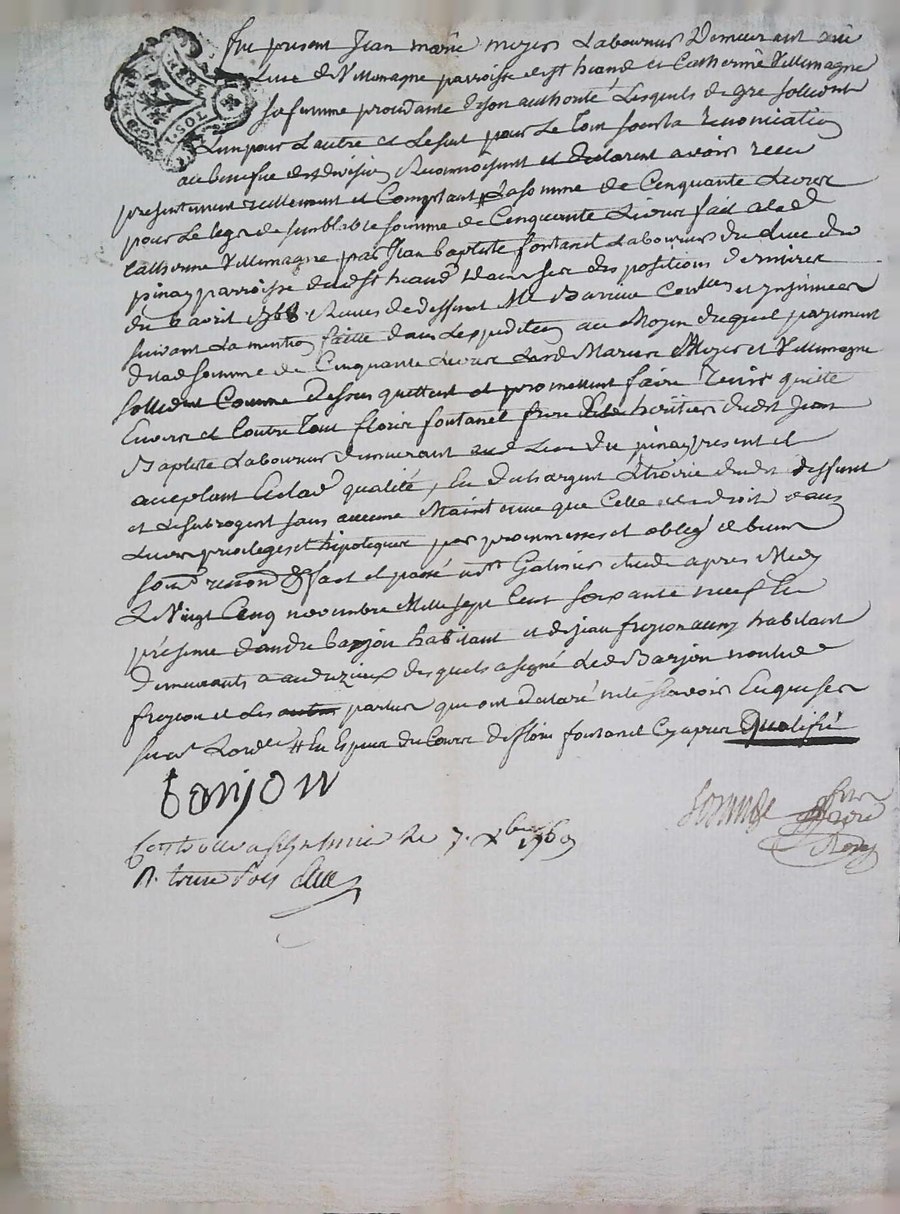 fut present Jean marie moyer Laboureur Demeurant au
Lieu de Villemagne parroisse de st heand et Catherine Villemagne
sa femme procedante de son authorité Lesquels de gre sollident
Lun pour Lautre et Le seul pour Le tout sous La renonciation
au benefice de division Reconnoissent et declarent avoir receu
presentement reellement et Comptant La somme de Cinquante Livres
pour Le legs de semblable somme de Cinquante Livres fait a lad
Catherine Villemagne par Jean baptiste fontanel Laboureur du Lieu du
pinay parroisse dud st heand dans ses dispositions dernieres
du 6 avril 1768 Receues de deffunt Me Barriere et Insinuées
suivant La mention faitte dans Lexpedition au Moyen duquel payement
de lad somme de Cinquante Livres Lesd Maries Moyer et Villemagne
sollident Comme Dessus quittent et promettent faire Tenir quitte
Envers et Contre Tous floris fontanel frere heritier dudt Jean
Baptiste Laboureur demeurant aud Lieu du pinay present et
acceptant En lad qualité, En dechargent L'hoirie dudt deffunt
et Le subrogent sans aucune Maintenue que Celle de droit a aux
Leurs privileges et hipoteques par promesses et oblig de biens
soum renon &c fait et passé a st Galmier etude apres Midy
Le Vingt Cinq novembre Mille sept Cent soixante neuf En
présence d'andre banjon habitant et de jean frejon aussy habitant
Demeurants a andrezieux desquels a signé Led Barjon non led
frejon et Les parties qui ont Declaré ne le sçavoir Enquis
suivt Lordce # En Espece du Cours de floris fontanel Cy apres Qualifié
banjon
Controllé a st Galmier Le 7 Xbre 1769
R. treize sols